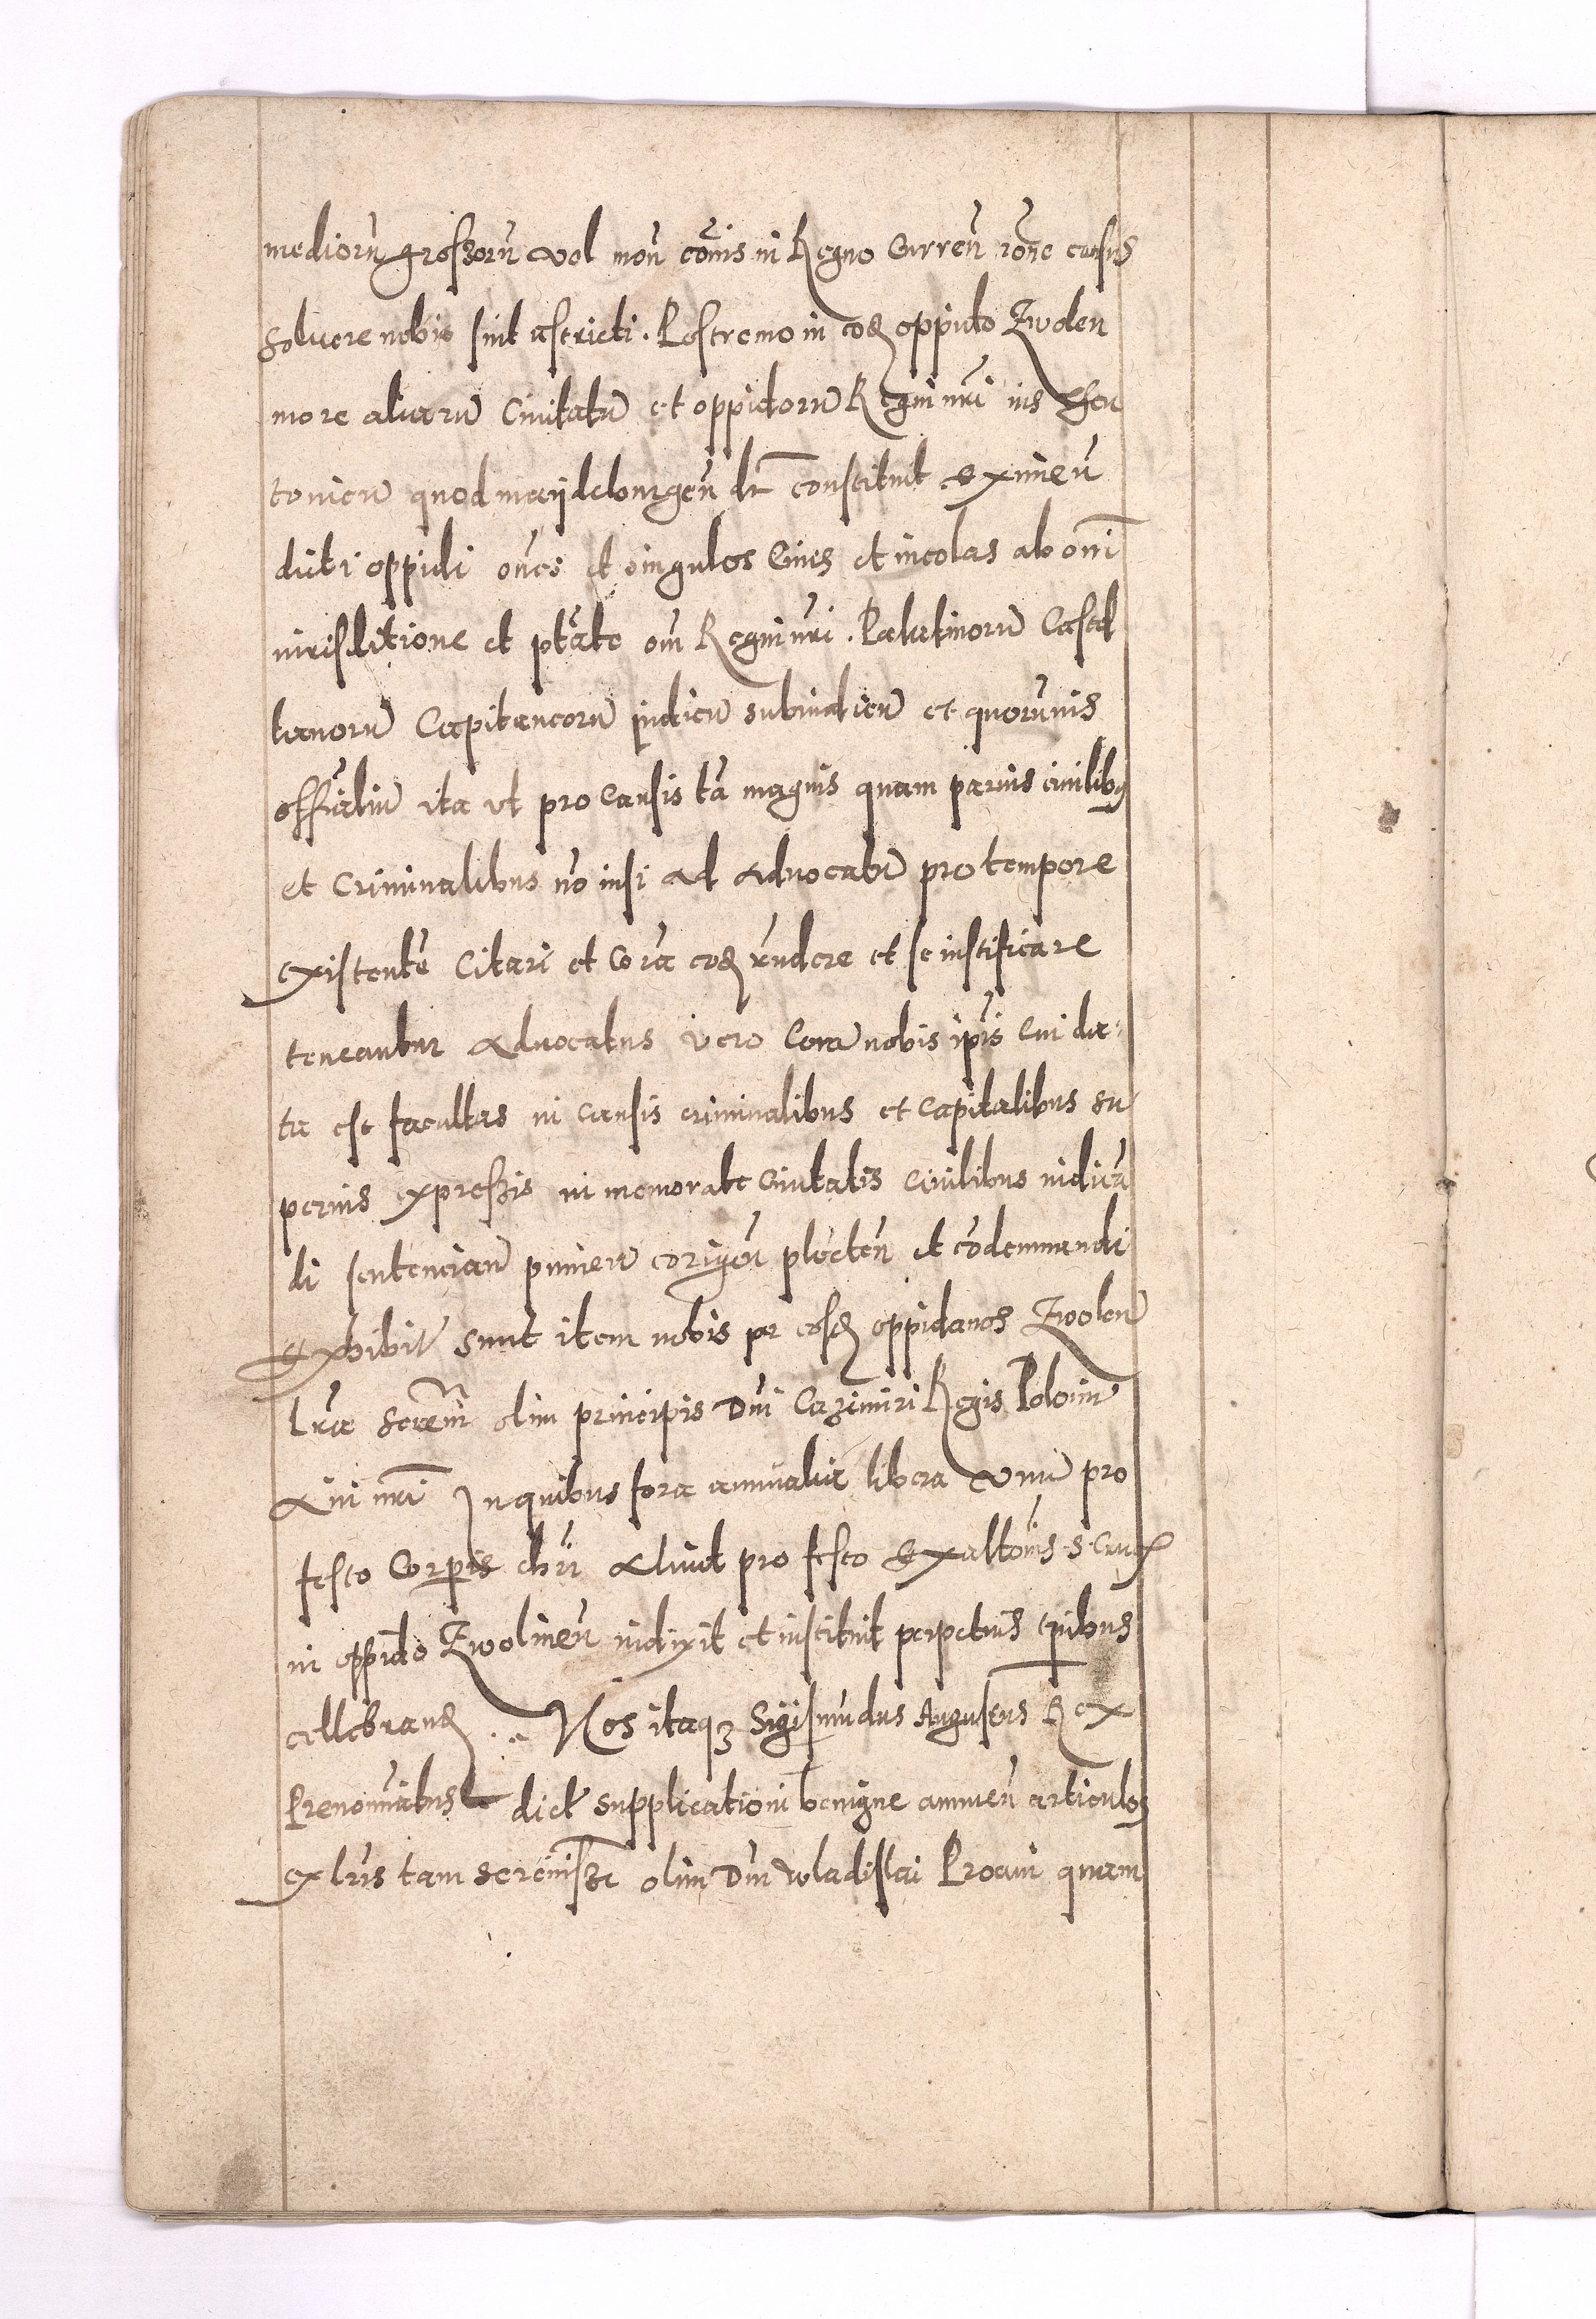 mediorū groſzorū vel mon̄ cōīs in Regno Curren̄ rōne census
Soluere nobis sint astricti. Postremo in eod oppido Zwolen
more aliarū Ciuitatū et oppidorū Regni nr̄i ius theu
tonicū quod maÿdeburgen̄ dr̄ constituit eximen̄
dicti oppidi oēs et singulos Ciues et incolas ab om̄i
iurisditione et ptāte om̄ Regni nr̄i. Palatinorū Castel
lanorū Capitaneorū iudicū subiudicū et quorūuis
offitialiū ita vt pro Causis tā magnis quam paruis ciuilibꝯ
et Criminalibus nō nisi ad Aduocatū pro tempore
existentē Citari et Corā eod rñdere et se iustificare
teneantur Aduocatus vero Corā nobis ipīs Cui da-
ta est facultas in Causis criminalibus et Capitalibus su
perius expreſzis in memorate Ciuitatis Ciuilibus iudicā
di sentencian̄ punien̄ corigen̄ plecten̄ et cōdemnandi
Exhibitę sunt item nobis per eosd oppidanos Zwolen̄
lr̄æ Serēm̄ olim principis Dn̄i Cazimiri Regis Poloniæ
Aui nr̄i In quibus fora annualia libera vnū pro
festo Corpris chr̄i Aliud pro festo Exaltōnis S. Crucꝭ
in oppido Zwolinen̄ indixit et instituit perpetuis tp̄ibus
cellebrand .. Nos itaqꝫ Sigismūdus Augustus Rex
Prenomīatus dictę supplicationi benigne annuen̄ articulos
ex lr̄is tam Sereniſzi olim Dn̄i wladislai Proaui quam